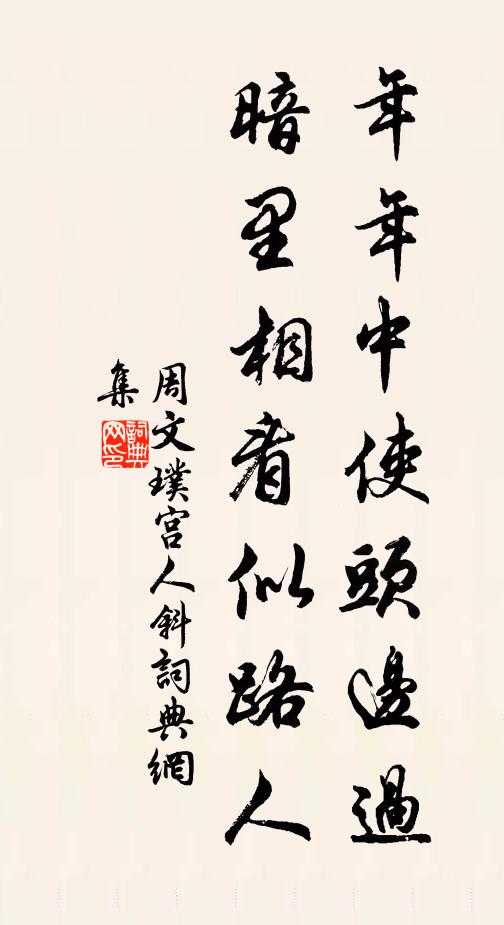 年年中使頭邊過
暗里相看似路人
周文璞宮人斜詞典網
集
詞典網印